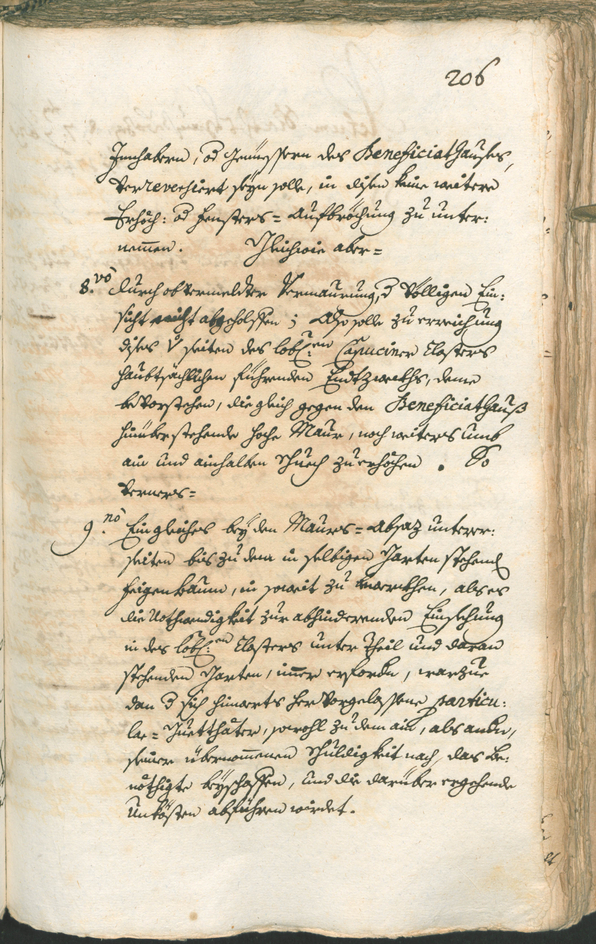 206
Innhabern, od Geniessern des Beneficiat Hauses,
verreverschiert seyn solle, in disen keine weitere
Erhöch: od Fensters= Aufbrechung zu unter:
nemmen. Gleichwie aber=
8.vo durch obvermeldte Vermaurung, d völligen Ein:
sicht nicht abgeholffen; Also solle zu erreichung
dises seiten des lobl:en Capuciner Closters
haubtsächlichen führenden Endtzweckhs, deme
bevorstehen, die gleich gegen den Beneficiat Hauß
hinüberstehende hoche Maur, noch weiters umb
ain und ainhalben Schuech zu erhöhen. So
verners=
9.no Ein gleiches bey den Maurs= Absaz unterer:
seiten bis zu dem in selbigen Garten stehend
feigenbaum, in soweit zu, als es
die Nothwendigkeit zur abhinderenden Einsehung
in des lobl:en Closters unter Theil und daran
stehenden Garten, immer erfordn, warzue
dan d sich hinwerts hervorgelassene particu:
lar= Guetthäter, sowohl zu dem ain, als andn,
seiner übernommenen Schuldigkeit nach, das Be:
nöthigte beyschaffen, und die darüber ergehende
Unkösten abführen würdet.